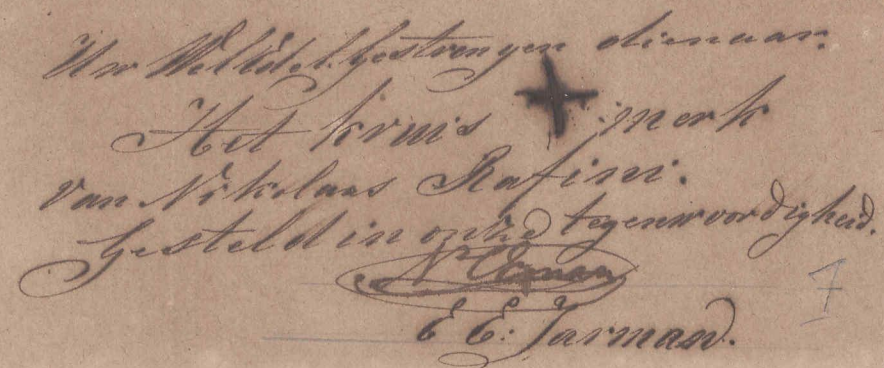 Uw WelEdel.Gestrengen dienaar.
Het kruis + merk
van Nikolaas Rafini.
Gesteld in onze tegenwoordigheid.
E E: Jarman.
7